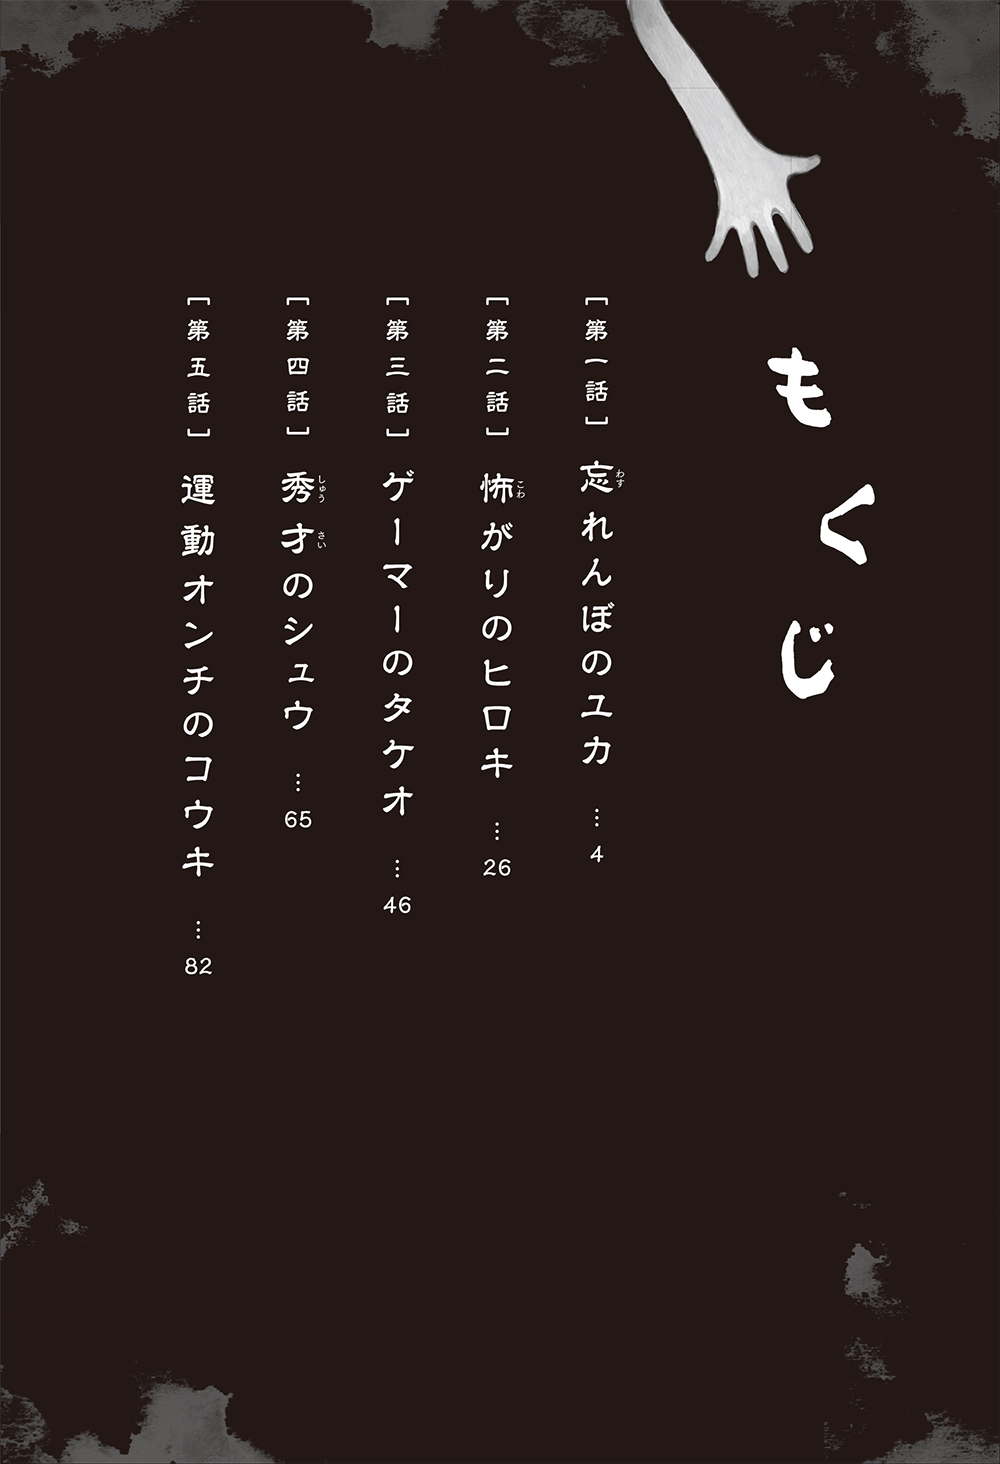 もくじ
[第一話] 忘れんぼのユカ … 4
わす
[第二話] 怖がりのヒロキ … 26
こわ
[第三話] ゲーマーのタケオ … 46
[第四話] 秀才のシュウ … 65
しゅう さい
[第五話] 運動オンチのコウキ … 82